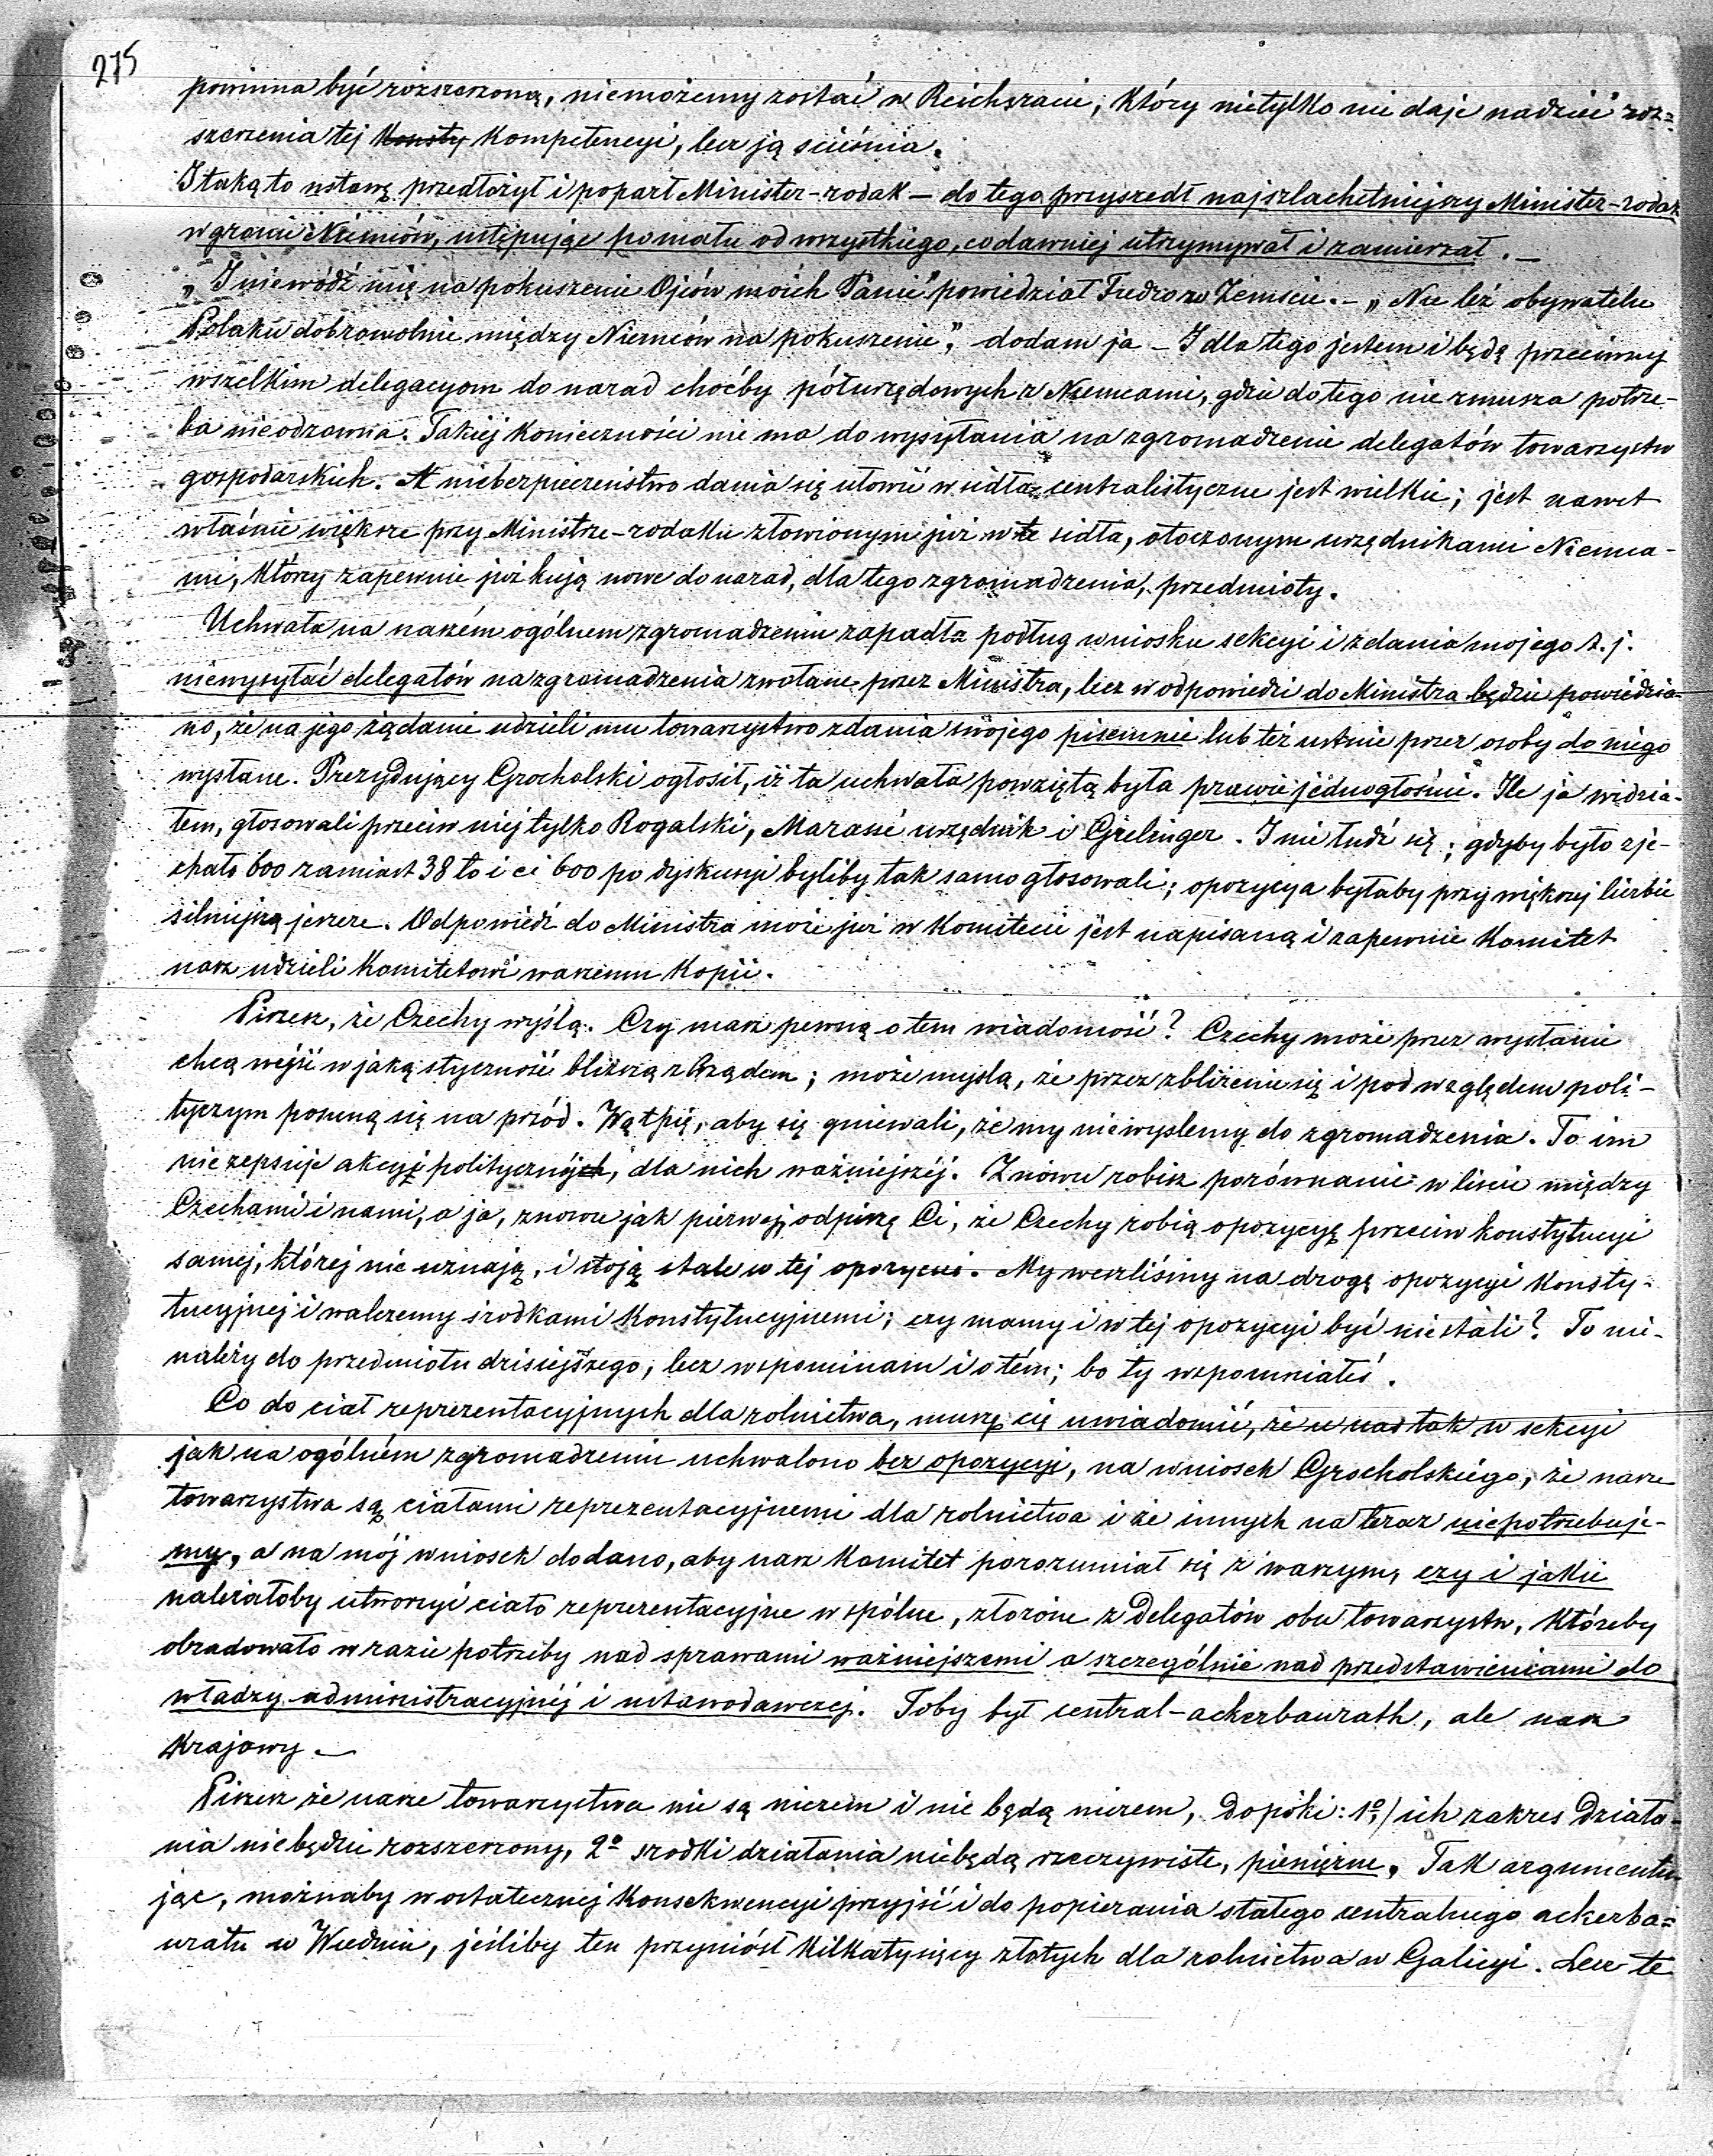 275
powinna być rozszerzoną, niemożemy zostać w Reichsracie, który nietylko nie daje nadziei roz=
szerzenia tej Konsty Kompetencyi, lecz ją ścieśnia.
I taką to ustawę przedłożył i poparł Minister-rodak – do tego przyszedł najszlachetniejszy Minister-rodak
w gronie Niemców, ustępując pomału od wszystkiego, co dawniej utrzymywał i zamierzał. –
„I niewódź mię na pokuszenie Ojców moich Panie" powiedział Fredro w Zemście. – „Nie leź obywatelu
Polaku dobrowolnie między Niemców na pokuszenie", dodam ja – I dla tego jestem i będę przeciwny
wszelkim delegacyom do narad choćby półurzędowych z Niemcami, gdzie do tego nie zmusza potrze-
ba nieodzowna. Takiej konieczności nie ma do wysyłania na zgromadzenie delegatów towarzystw
gospodarskich. A niebezpieczeństwo dania się ułowić w sidła centralistyczne jest wielkie; jest nawet
właśnie większe przy Ministrze-rodaku złowionym już w te sidła, otoczonym urzędnikami Niemca-
mi, którzy zapewnie już kują nowe do narad, dla tego zgromadzenia, przedmioty.
Uchwała na naszém ogólnem zgromadzeniu zapadła podług wniosku sekcyi i zdania mojego t.j.
niewysyłać delegatów na zgromadzenia zwołane przez Ministra, lecz w odpowiedzi do Ministra będzie powiedzia-
no, że na jego żądanie udzieli mu towarzystwo zdania swojego pisemnie lub też ustnie przez osoby do niego
wysłane. Prezydujący Grocholski ogłosił, iż ta uchwała powziętą była prawie jednogłośnie. Ile ja widzia-
łem, głosowali przeciw niej tylko Rogalski, Marassé urzędnik i Grielinger. I nie łudź się; gdyby było zje-
chało 600 zamiast 38 to i ci 600 po dyskusyi byliby tak samo głosowali; opozycya byłaby przy większej liczbie
silniejszą jeszcze. Odpowiedź do Ministra może już w Komitecie jest napisaną i zapewnie Komitet
nasz udzieli Komitetowi waszemu Kopii.
Piszesz, że Czechy wyślą. Czy masz pewną o tem wiadomość? Czechy może przez wysłanie
chcą wejść w jaką styczność bliższą z Rządem; może myślą, że przez zbliżenie się i pod względem poli-
tycznym posuną się na przód. Wątpię, aby się gniewali, że my niewyslemy do zgromadzenia. To im
nie zepsuje akcyi politycznéj, dla nich ważniejszéj. Znowu robisz porównanie w liście między
Czechami i nami, a ja, znowu jak pierwej, odpiszę Ci, że Czechy robią opozycyę przeciw konstytucyi
samej, której nie uznają, i stoją stale w tej opozycyi. My weszliśmy na drogę opozycyi Konsty-
tucyjnej i walczemy środkami Konstytucyjnemi; czy mamy i w tej opozycyi być niestali? To nie-
należy do przedmiotu dzisiejszego, lecz wspominam i o tém; bo ty wspomniałeś.
Co do ciał reprezentacyjnych dla rolnictwa, muszę cię uwiadomić, że u nas tak w sekcyi
jak na ogólném zgromadzeniu uchwalono bez opozycyi, na wniosek Grocholskiego, że nasze
towarzystwa są ciałami reprezentacyjnemi dla rolnictwa i że innych na teraz niepotrzebuje-
my, a na mój wniosek dodano, aby nasz Komitet porozumiał się z waszym, czy i jakie
należałoby utworzyć ciało reprezentacyjne wspólne, złożone z Delegatów obu towarzystw, któreby
obradowało w razie potrzeby nad sprawami ważniejszemi a szczególnie nad przedstawieniami do
władzy administracyjnéj i ustawodawczej. Toby był central-ackerbaurath, ale nasz
Krajowy. –
Piszesz że nasze towarzystwa nie są niczem i nie będą niczem, dopóki: 1º/ ich zakres działa-
nia niebędzie rozszerzony, 2º środki działania niebędą rzeczywiste, pieniężne. Tak argumentu-
jąc, możnaby w ostatecznej Konsekwencyi przyjść i do popierania stałego centralnego ackerba=
uratu w Wiedniu, jeśliby ten przyniósł Kilkatysięcy złotych dla rolnictwa w Galicyi. Lecz te